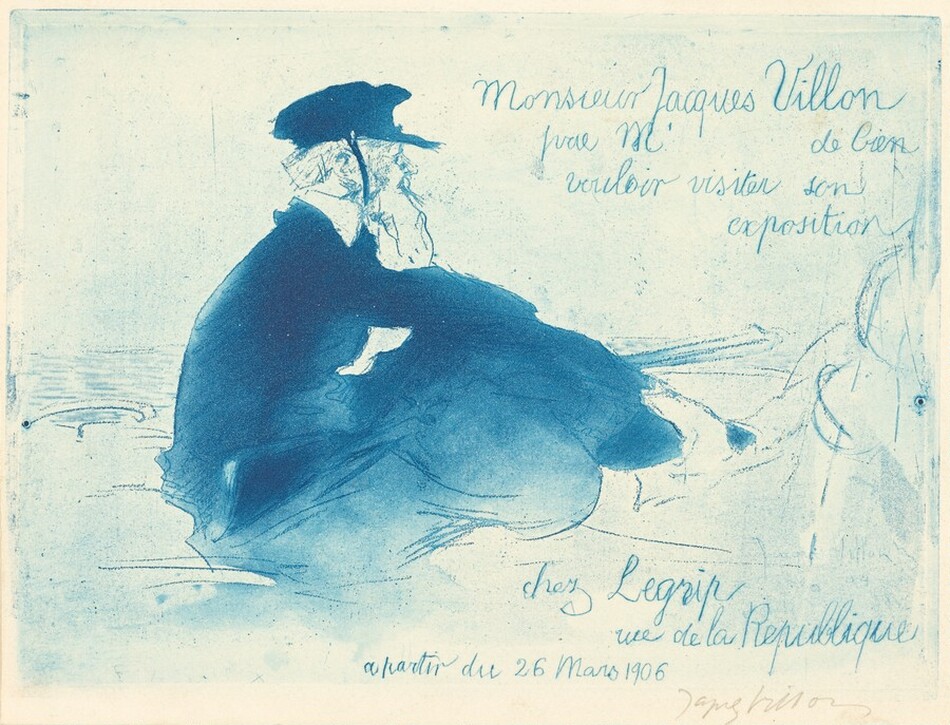 Monsieur Jacques Villon
prie Mʳ de bien
vouloir visiter son
exposition
chez Legrip
rue de la Republique
a partir du 26 Mars 1906
Jacques Villon